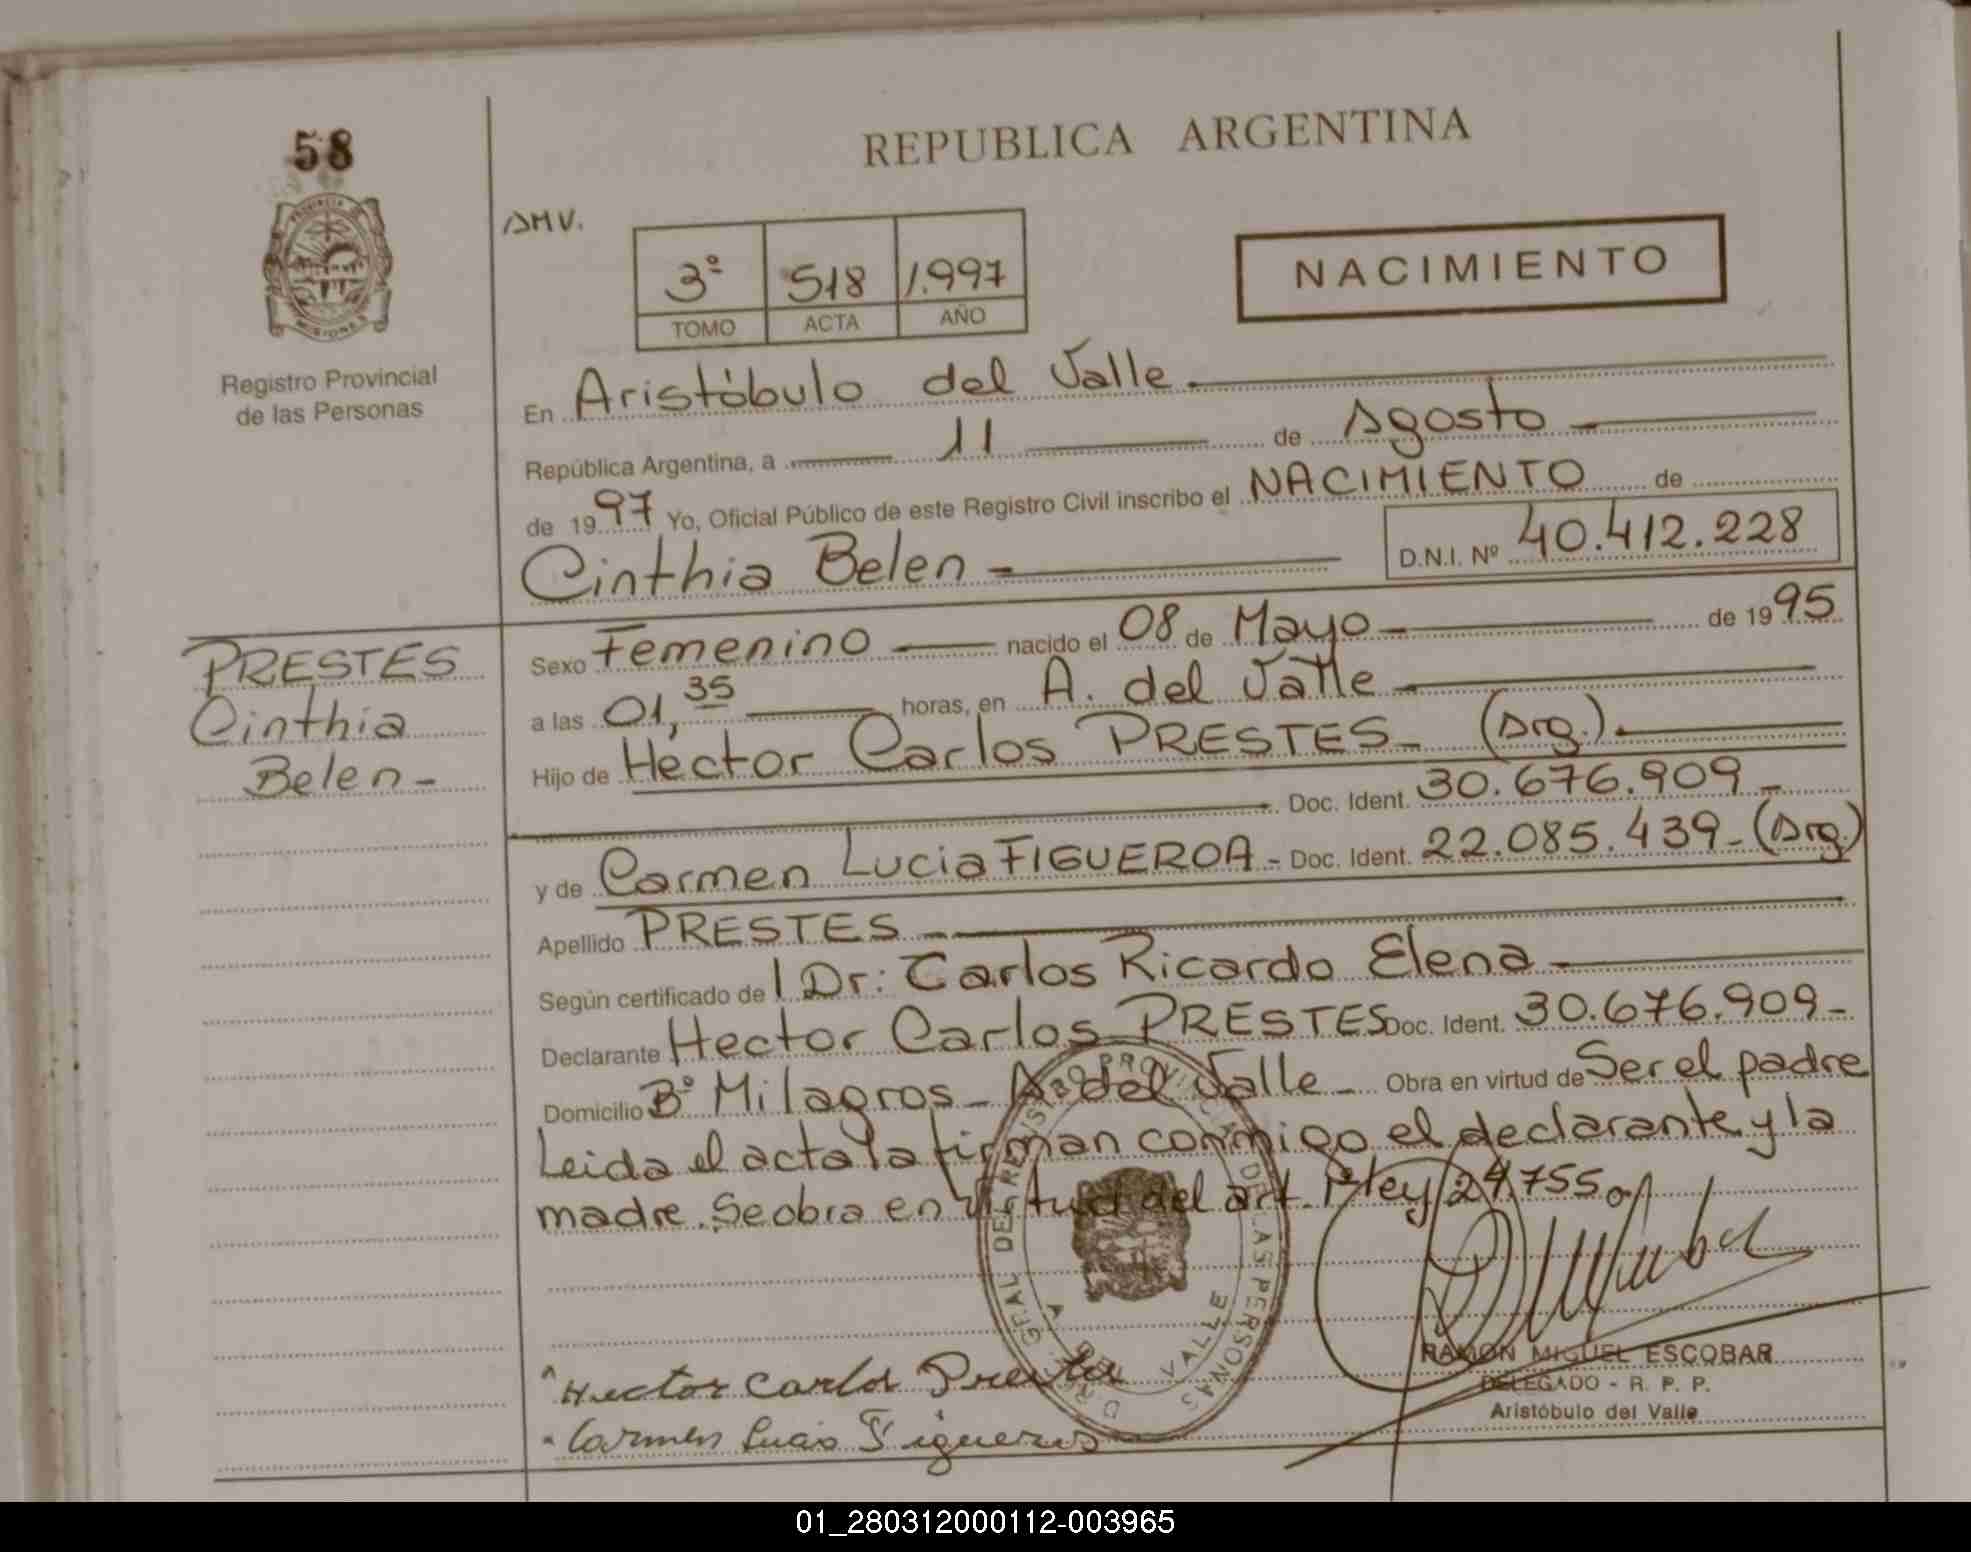 58
REPUBLICA ARGENTINA
AMV.
3º 518 1.997
TOMO ACTA AÑO
NACIMIENTO
PROVINCIA DE
MISIONES
Registro Provincial
de las Personas
En Aristóbulo del Valle
República Argentina, a 11 de Agosto
de 1997 Yo, Oficial Público de este Registro Civil inscribo el NACIMIENTO de
Cinthia Belen D.N.I. Nº 40.412.228
PRESTES
Cinthia
Belen-
Sexo Femenino nacido el 08 de Mayo de 1995
a las 01,35 horas, en A. del Valle
Hijo de Hector Carlos PRESTES (Arg.)
Doc. Ident. 30.676.909
y de Carmen Lucia FIGUEROA - Doc. Ident. 22.085.439 - (Arg.)
Apellido PRESTES
Según certificado de l Dr: Carlos Ricardo Elena
Declarante Hector Carlos PRESTES Doc. Ident. 30.676.909-
Domicilio Bº Milagros - A. del Valle - Obra en virtud de Ser el padre
Leida el acta la firman conmigo el declarante y la
madre. Se obra en virtud del art. ley 24.755
Hector Carlos Prestes
Carmen Lucia Figueroa
RAMON MIGUEL ESCOBAR
DELEGADO - R. P. P.
Aristóbulo del Valle
01_280312000112-003965